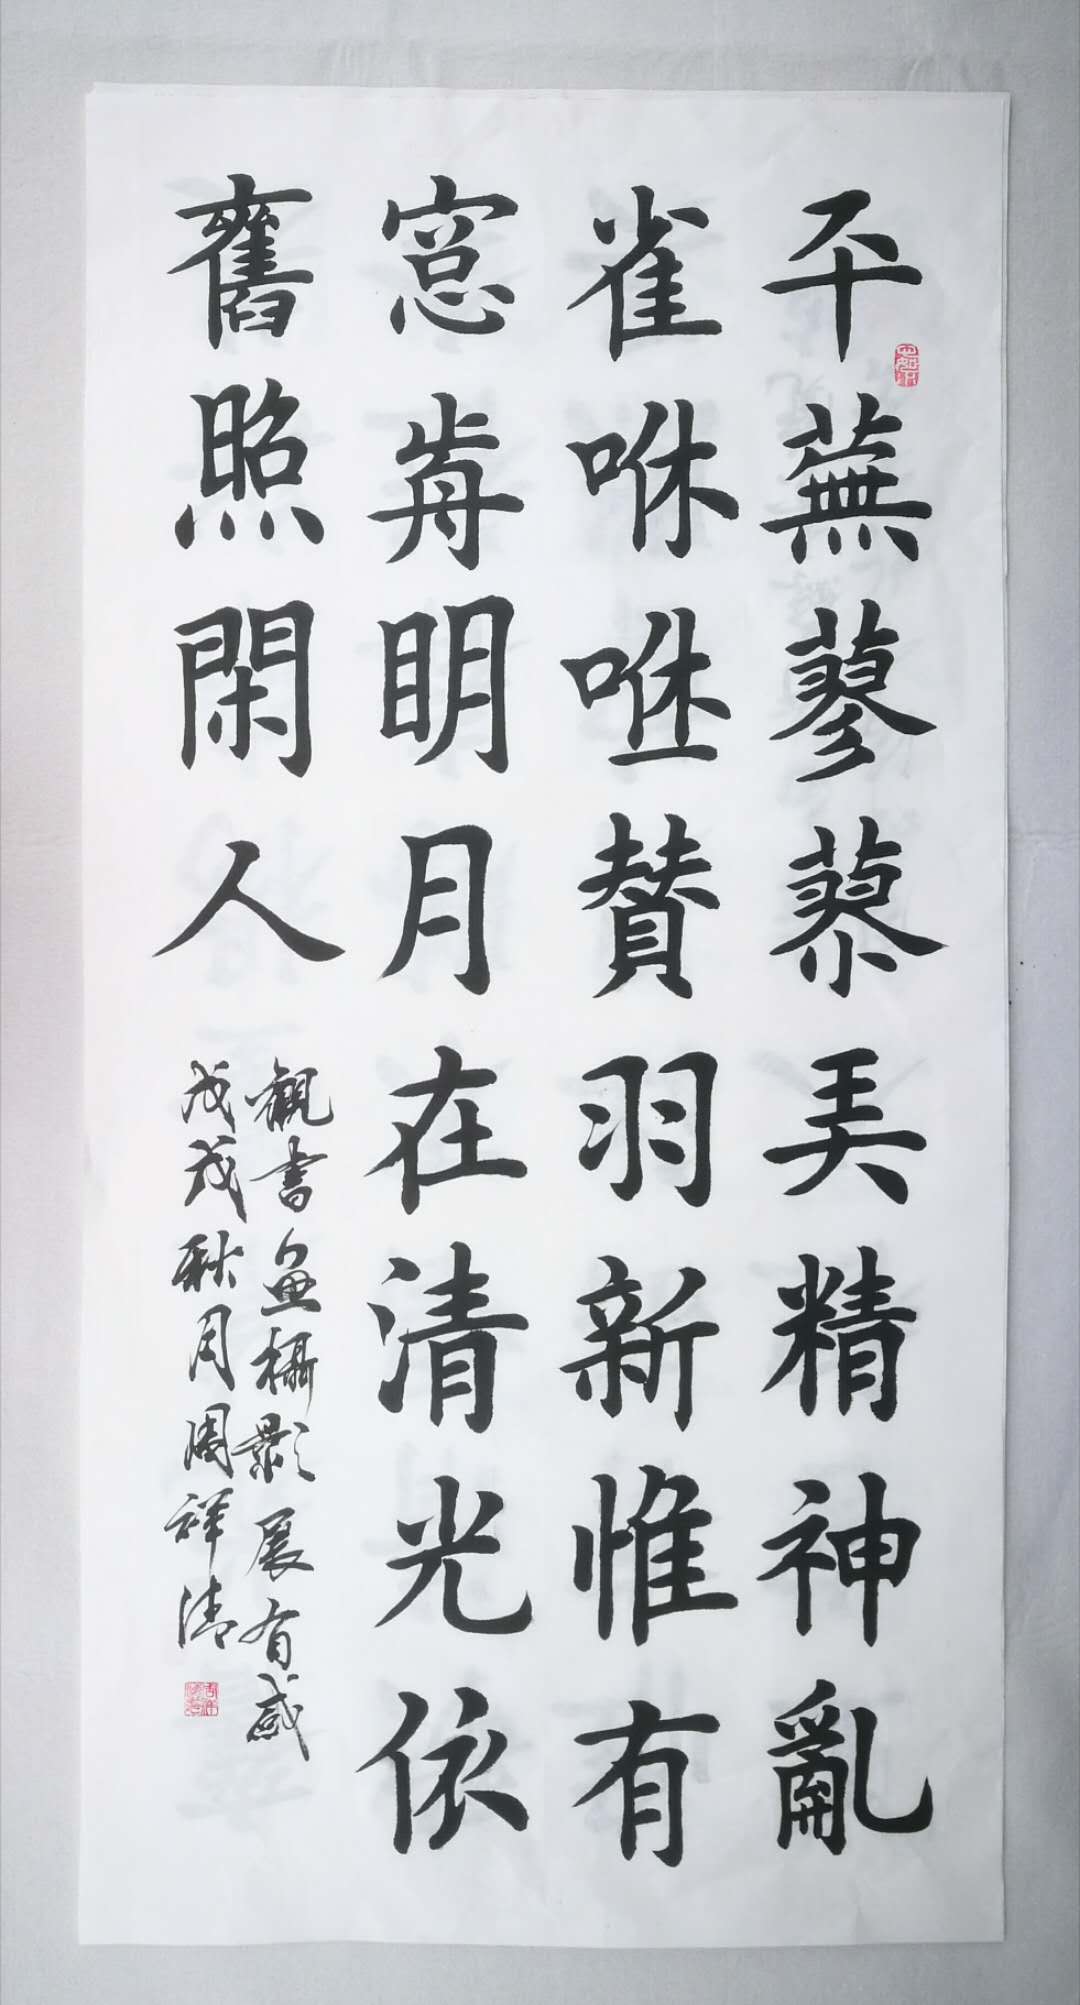 平蕪蓼蓼弄精神亂
雀咻咻贊羽新惟有
窓歬明月在清光依
舊照閑人
觀書畫攝影展有感
戊戌秋月周祥清